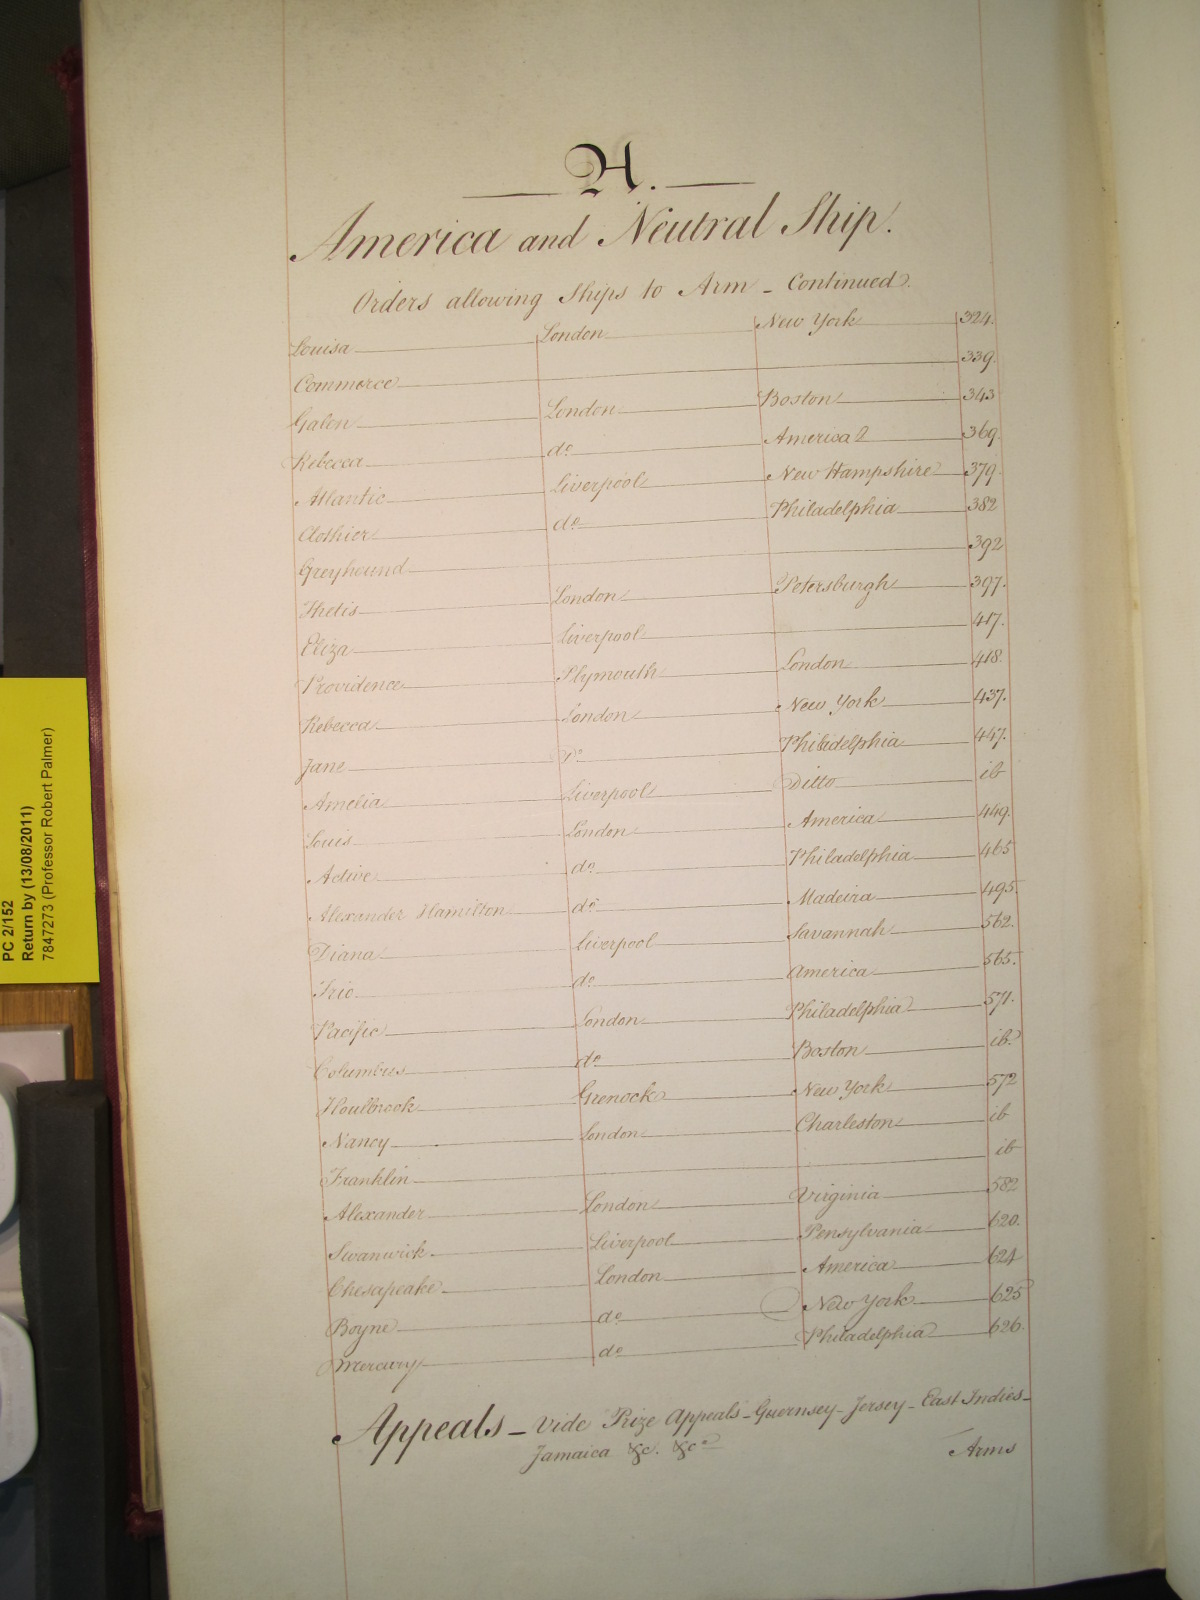 A.
America and Neutral Ship.
Orders allowing Ships to Arm - Continued.
Louisa London New York 324.
Commerce 339.
Galen London Boston 343
Rebecca do America 369.
Atlantic Liverpool New Hampshire 379.
Clothier do Philadelphia 382
Greyhound 392
Thetis London Petersburgh 397.
Eliza Liverpool 417.
Providence Plymouth London 418.
Rebecca London New York 437.
Jane Do Philadelphia 447.
Amelia Liverpool Ditto ib
Louis London America 449.
Active do Philadelphia 465
Alexander Hamilton do Madeira 495.
Diana Liverpool Savannah 562.
Trio do America 565.
Pacific London Philadelphia 571.
Columbus do Boston ib.
Houlbrook Grenock New York 572
Nancy London Charleston ib
Franklin ib
Alexander London Virginia 582
Swanwick Liverpool Pensylvania 620.
Chesapeake London America 624
Boyne do New York 625
Mercury do Philadelphia 626.
Appeals - Vide Prize Appeals - Guernsey - Jersey - East Indies -
Jamaica &c. &c.
Arms
PC 2/152
Return by (13/08/2011)
7847273 (Professor Robert Palmer)